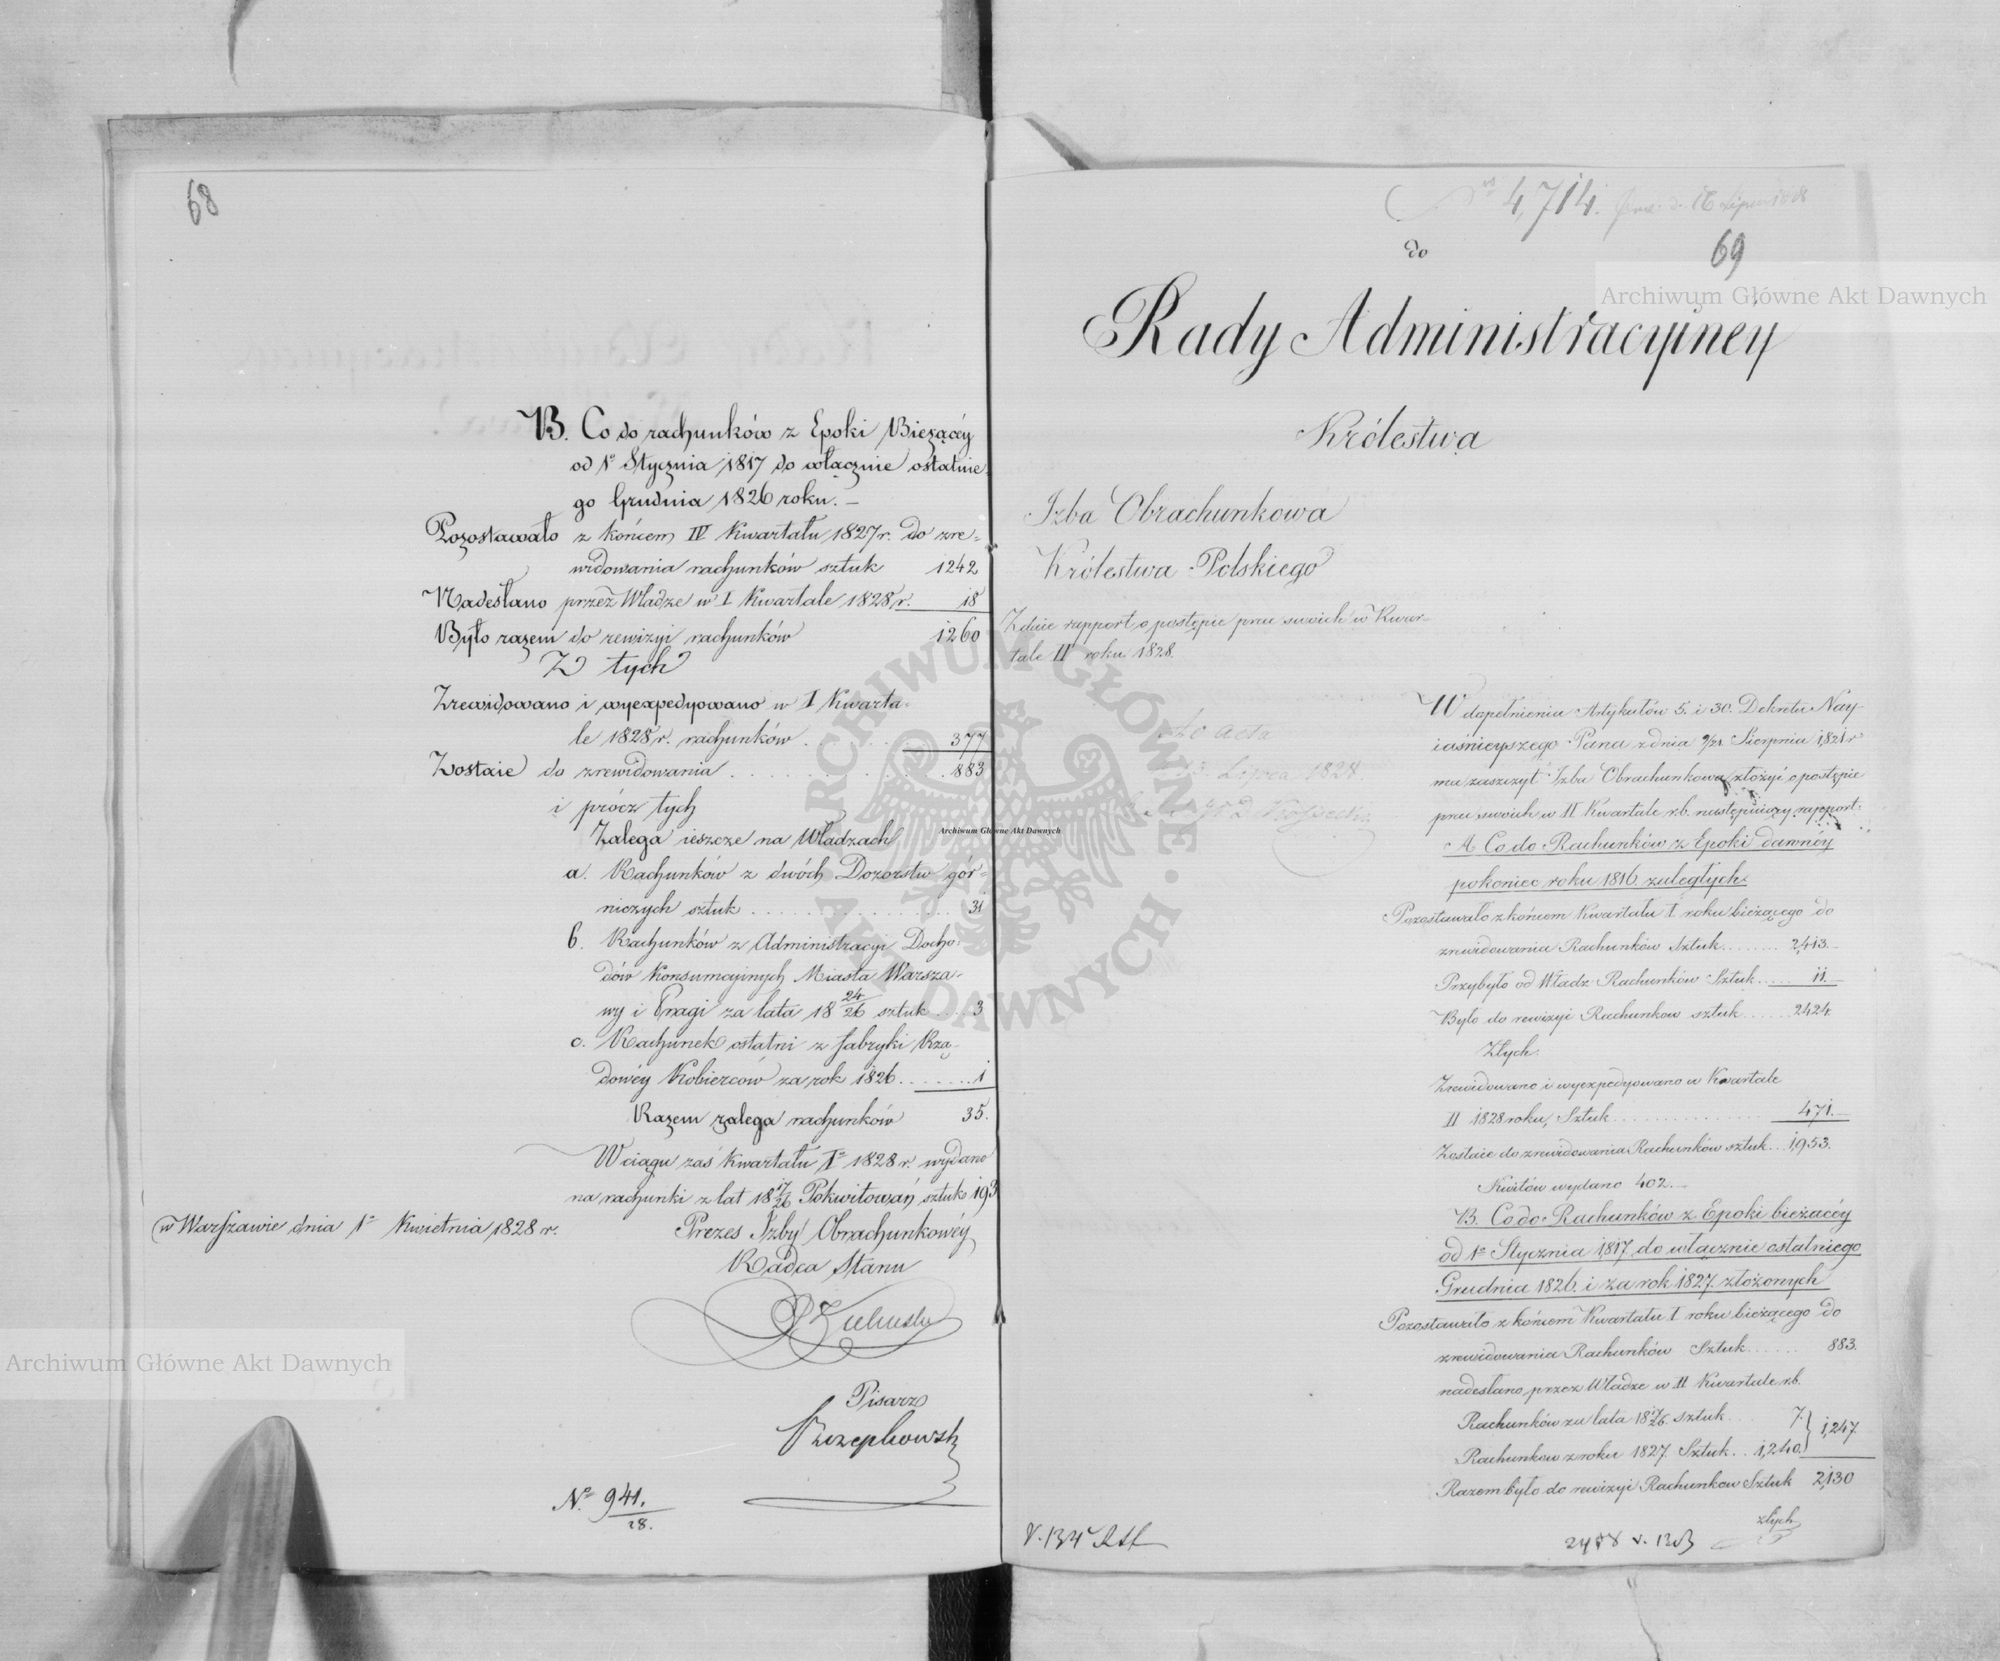 68
B. Co do rachunków z Epoki Bieżącéy
od 1º Stycznia 1817 do włącznie ostatnie-
go Grudnia 1826 roku. –
Pozostawało z końcem IV Kwartału 1827 r. do zre=
widowania rachunków sztuk 1242
Nadesłano przez Władze w I Kwartale 1828 r. 18
Było razem do rewizyi rachunków 1260
Z tych
Zrewidowano i wyexpedyowano w I Kwarta-
le 1828 r. rachunków . . . 377
Zostaie do zrewidowania . . . . . . . . 883
i prócz tych
Zalega ieszcze na Władzach
a. Rachunków z dwóch Dozorstw gór-
niczych sztuk . . . . . . . . . . 31
b. Rachunków z Administracyi Docho-
dów Konsumcyinych Miasta Warsza-
wy i Pragi za lata 18 24/26 sztuk . . . 3
c. Rachunek ostatni z fabryki Rzą-
dowéy Kobierców za rok 1826 . . . . . . 1
Razem zalega rachunków 35.
W ciągu zaś Kwartału Iº 1828 r. wydano
na rachunki z lat 18 17/26 Pokwitowań sztuk 193
w Warszawie dnia 1º Kwietnia 1828 r.
Prezes Izby Obrachunkowéy
Radca Stanu
Pisarz
Nº 941.
28.
Nº 4,714.
69
do
Rady Administracyinéy
Królestwa
Izba Obrachunkowa
Królestwa Polskiego
Zdaie rapport o postępie prac swoich w Kwar-
tale II roku 1828.
Ad acta
Lipca 1828
W dopełnieniu Artykułów 5. i 30. Dekretu Nay-
iaśnieyszego Pana z dnia 9/21 Sierpnia 1821 r
ma zaszczyt Izba Obrachunkowa złożyć o postępie
prac swoich w II Kwartale r.b. następuiący rapport:
A. Co do Rachunków z Epoki dawnéy
po koniec roku 1816. zaległych.
Pozostawało z końcem Kwartału I roku bieżącego do
zrewidowania Rachunków Sztuk . . . . . . 2,413. –
Przybyło od Władz Rachunków Sztuk . . . . 11. –
Było do rewizyi Rachunkow sztuk . . . . . 2424.
Z tych.
Zrewidowano i wyexpedyowano w Kwartale
II 1828 roku, Sztuk . . . . . . . . . . . . 471. –
Zostaie do zrewidowania Rachunków sztuk . . . 1,953.
Kwitów wydano 402. –
B. Co do Rachunków z Epoki bieżącéy
od 1º Stycznia 1817 do włącznie ostatniego
Grudnia 1826. i za rok 1827. złożonych
Pozostawało z końcem Kwartału I roku bieżącego do
zrewidowania Rachunków Sztuk . . . . . . 883.
nadesłano przez Władze w II Kwartale r.b.
Rachunków za lata 18 17/26. sztuk . . . 7. } 1,247.
Rachunkow z roku 1827. Sztuk . . 1,240.
Razem było do rewizyi Rachunkow Sztuk 2,130
z tych
Archiwum Główne Akt Dawnych
Archiwum Główne Akt Dawnych
Archiwum Główne Akt Dawnych
ARCHIWUM GŁÓWNE AKT DAWNYCH